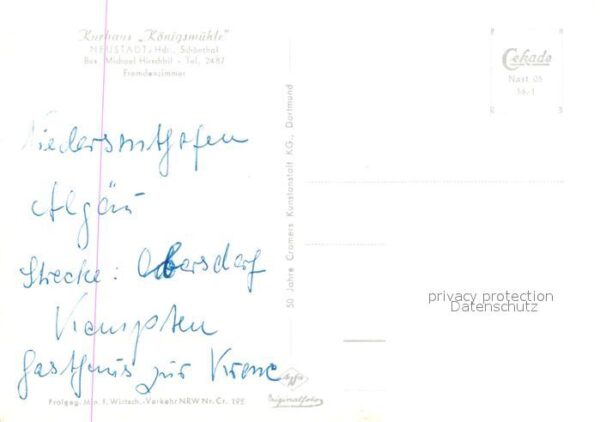 Kurhaus „Königsmühle"
NEUSTADT, Hdr., Schöntal
Bes. Michael Hirschbil - Tel. 2487
Fremdenzimmer
Cekade
Nast 05
16-1
Niedersonthofen
Algäu
Strecke: Obersdorf
Kempten
Gasthaus zur Krone
50 Jahre Cramers Kunstanstalt KG., Dortmund
privacy protection
Datenschutz
Agfa
Originalfoto
Freigeg. Min. f. Wirtsch. - Verkehr NRW Nr. Cr. 195